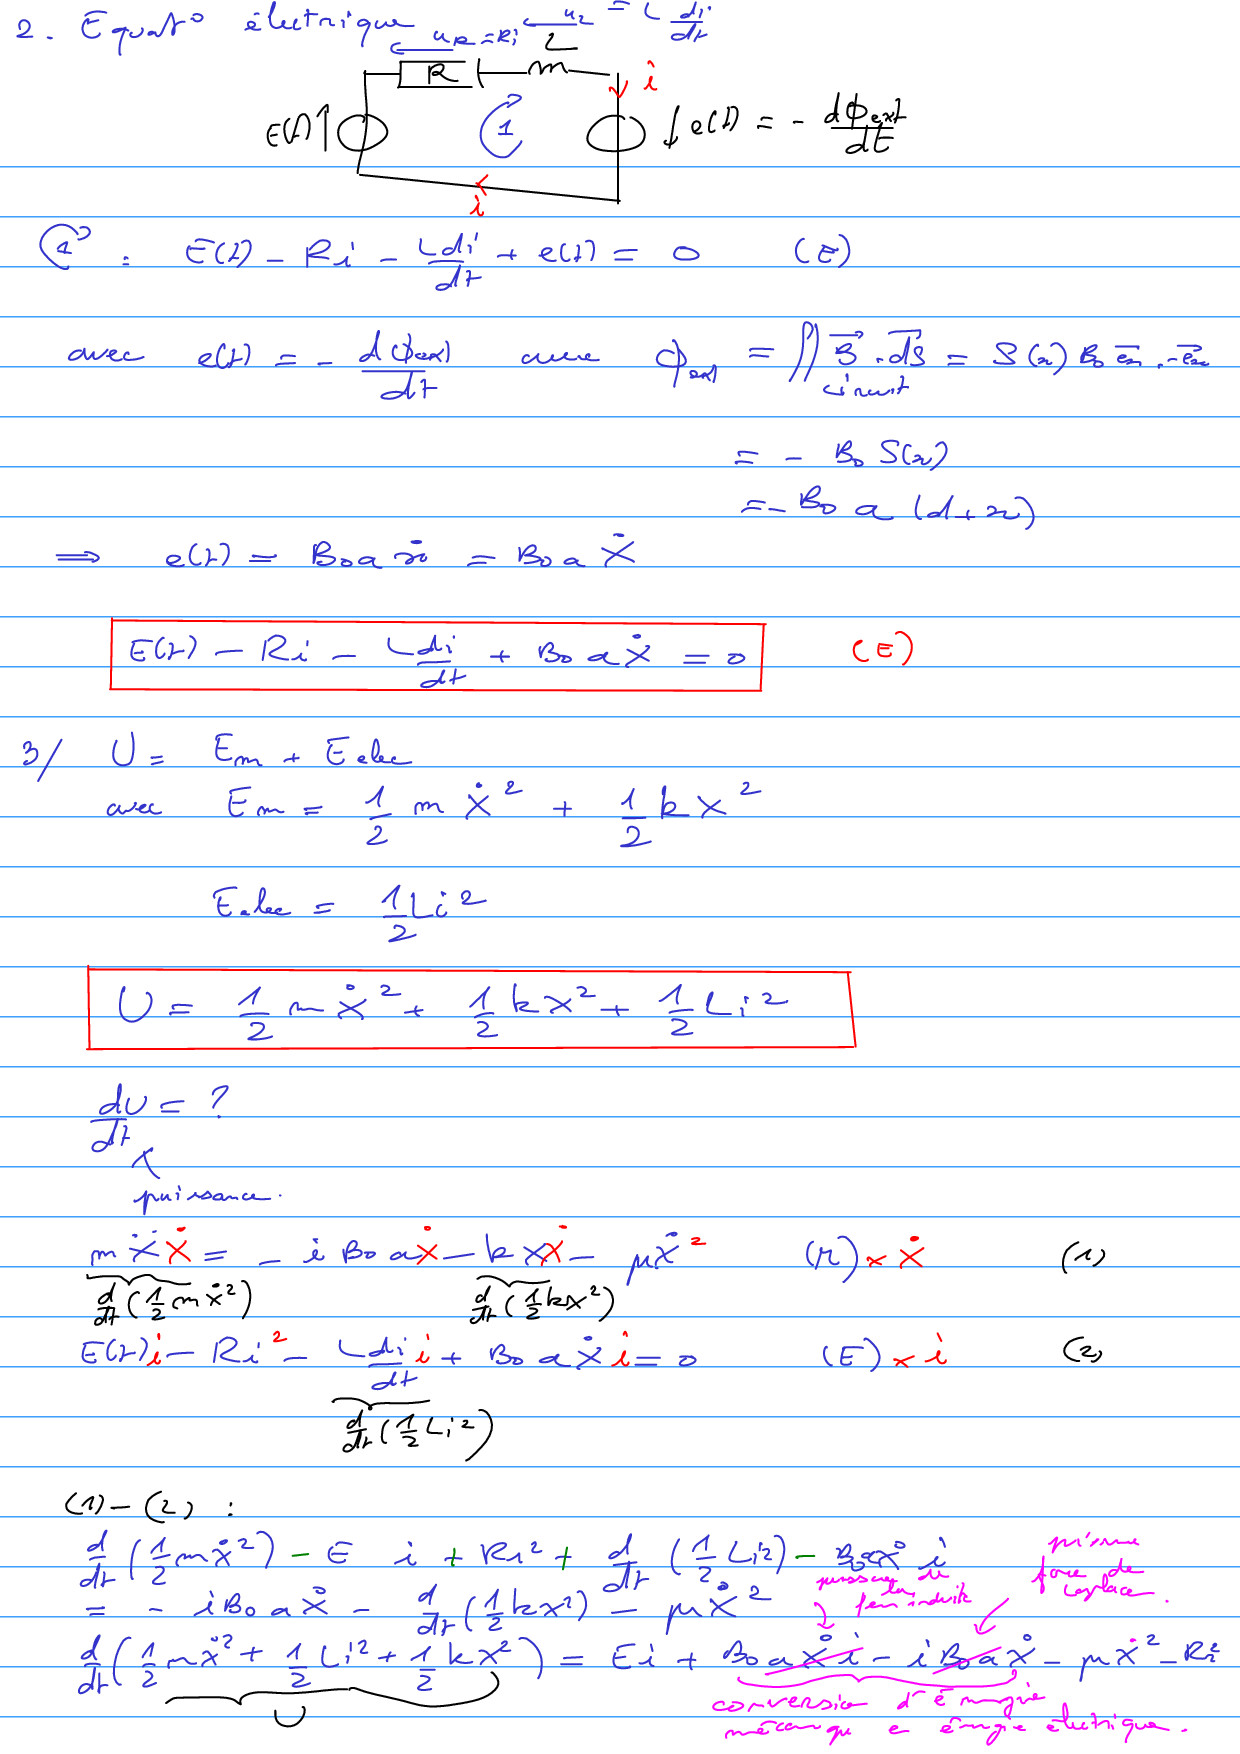 2. Equat° électrique u_R = Ri u_L = L di/dt
R L i
E(t) 1 e(t) = - dϕext/dt
i
1 : E(t) - Ri - L di/dt + e(t) = 0 (E)
avec e(t) = - dϕext/dt avec ϕext = ∬circuit B⃗.dS⃗ = S(x) B₀ e⃗x . -e⃗x
= - B₀ S(x)
= - B₀ a (d+x)
⟹ e(t) = B₀ a ẋ = B₀ a Ẋ
E(t) - Ri - L di/dt + B₀ a Ẋ = 0 (E)
3/ U = Em + Eelec
avec Em = 1/2 m Ẋ² + 1/2 k X²
Eelec = 1/2 L i²
U = 1/2 m Ẋ² + 1/2 k X² + 1/2 L i²
dU/dt = ?
puissance.
m Ẍ Ẋ = - i B₀ a Ẋ - k X Ẋ - μ Ẋ² (M) × Ẋ (1)
d/dt (1/2 m Ẋ²) d/dt (1/2 k X²)
E(t) i - R i² - L di/dt i + B₀ a Ẋ i = 0 (E) × i (2)
d/dt (1/2 L i²)
(1) - (2) :
d/dt (1/2 m Ẋ²) - E i + R i² + d/dt (1/2 L i²) - B₀ a Ẋ i
= - i B₀ a Ẋ - d/dt (1/2 k X²) - μ Ẋ²
puissance de la fem induite
force de Laplace
d/dt (1/2 m Ẋ² + 1/2 L i² + 1/2 k X²) = E i + B₀ a Ẋ i - i B₀ a Ẋ - μ Ẋ² - R i²
U
conversion d'énergie
mécanique en énergie électrique.